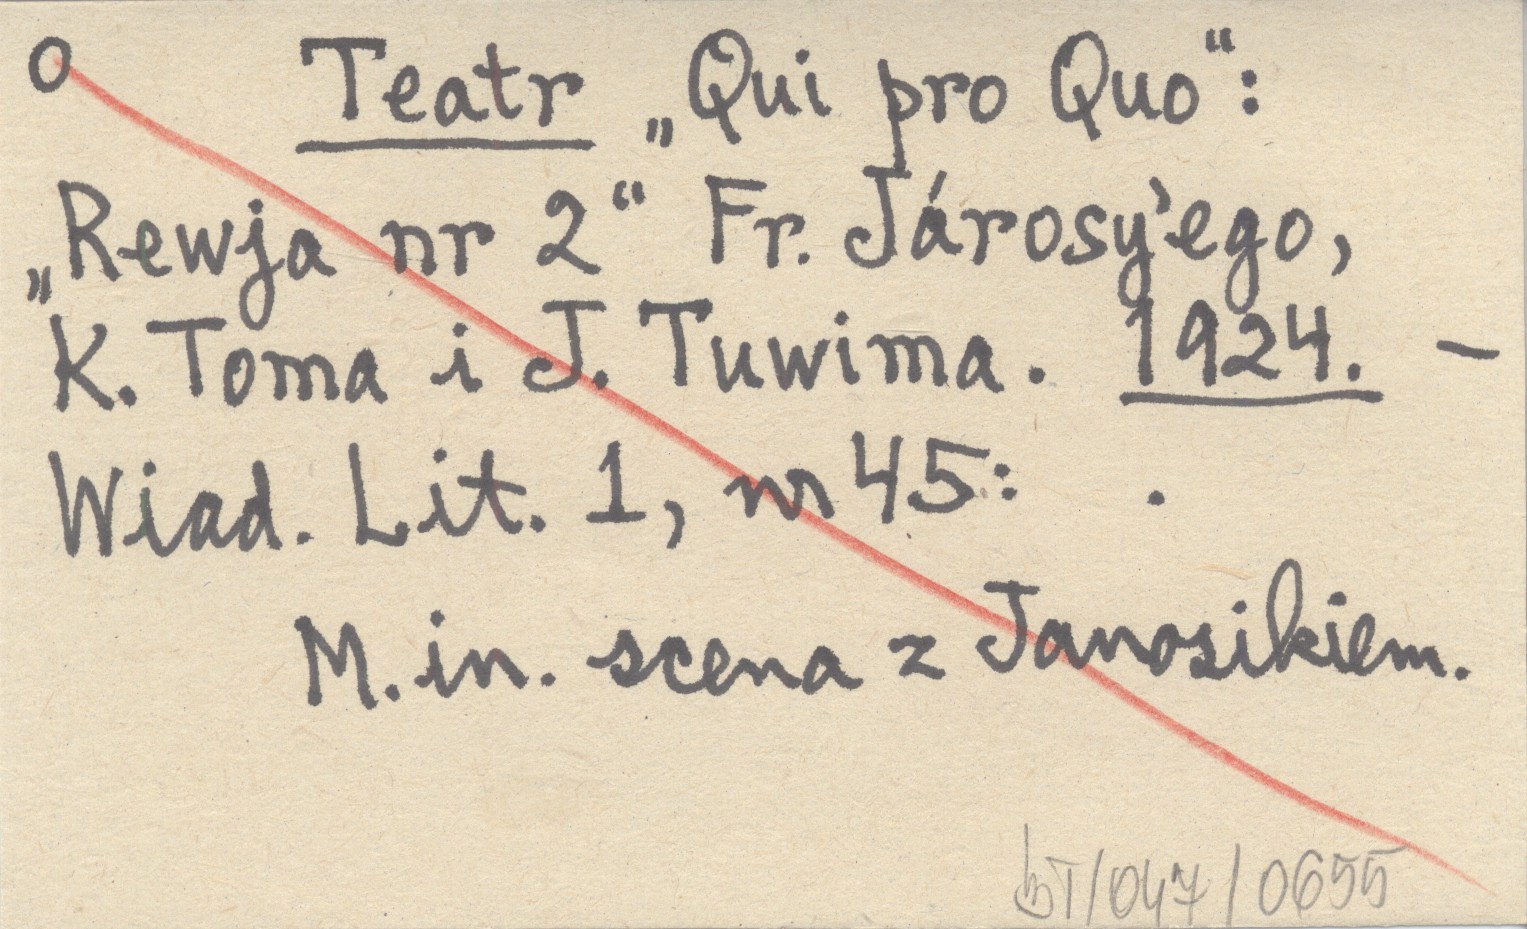 O Teatr „Qui pro Quo“:
„Rewja nr 2“ Fr. Járosy'ego,
K. Toma i J. Tuwima. 1924. –
Wiad. Lit. 1, nr 45: .
M. in. scena z Janosikiem.
BT/047/0655